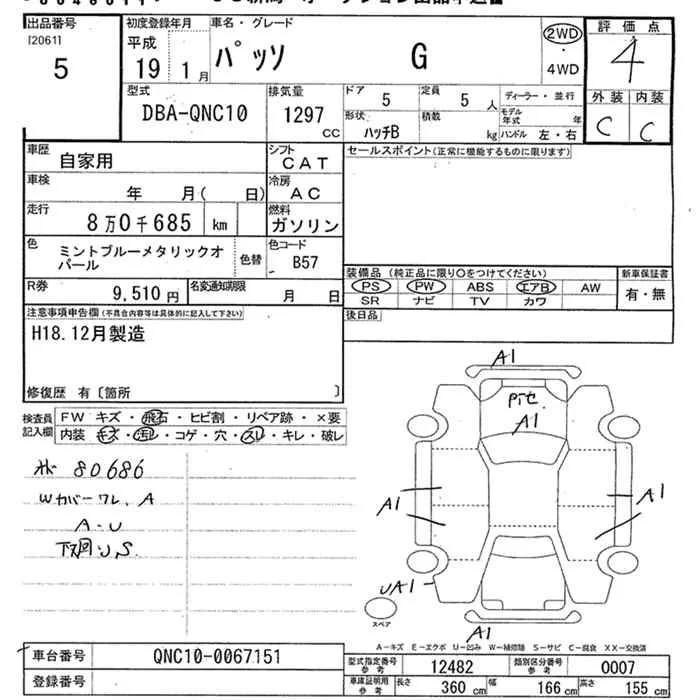 出品番号
[2061]
5
初度登録年月
平成
19 1 月
車名・グレード
パッソ G
2WD
・
4WD
評価点
4
外装 内装
C C
型式
DBA-QNC10
排気量
1297
CC
ドア
5
定員
5 人
形状
ハッチB
積載
kg
ディーラー・並行
モデル年式 年
ハンドル 左・右
車歴
自家用
シフト
CAT
車検
年 月( 日)
冷房
AC
走行
8万0千685 km
燃料
ガソリン
色
ミントブルーメタリックオパール
色替
色コード
B57
R券
9,510 円
名変通知期限
月 日
セールスポイント(正常に機能するものに限ります)
装備品(純正品に限り○をつけてください)
PS PW ABS エアB AW
SR ナビ TV カワ
新車保証書
有・無
後日品
注意事項申告欄(不具合内容等は具体的に記入して下さい)
H18.12月製造
修復歴 有〔箇所 〕
検査員
記入欄
FW キズ・飛石・ヒビ割・リペア跡・×要
内装 キズ・汚レ・コゲ・穴・スレ・キレ・破レ
80686
Wカバーワレ、A
A-U
下回U,S
A1
A1
A1
A1
UA1
A1
スペア
A-キズ E-エクボ U-凹み W-補修跡 S-サビ C-腐食 XX-交換済
車台番号
QNC10-0067151
登録番号
型式指定番号
参考
12482
類別区分番号
参考
0007
車庫証明用
参考
長さ 360 cm 幅 166 cm 高さ 155 cm